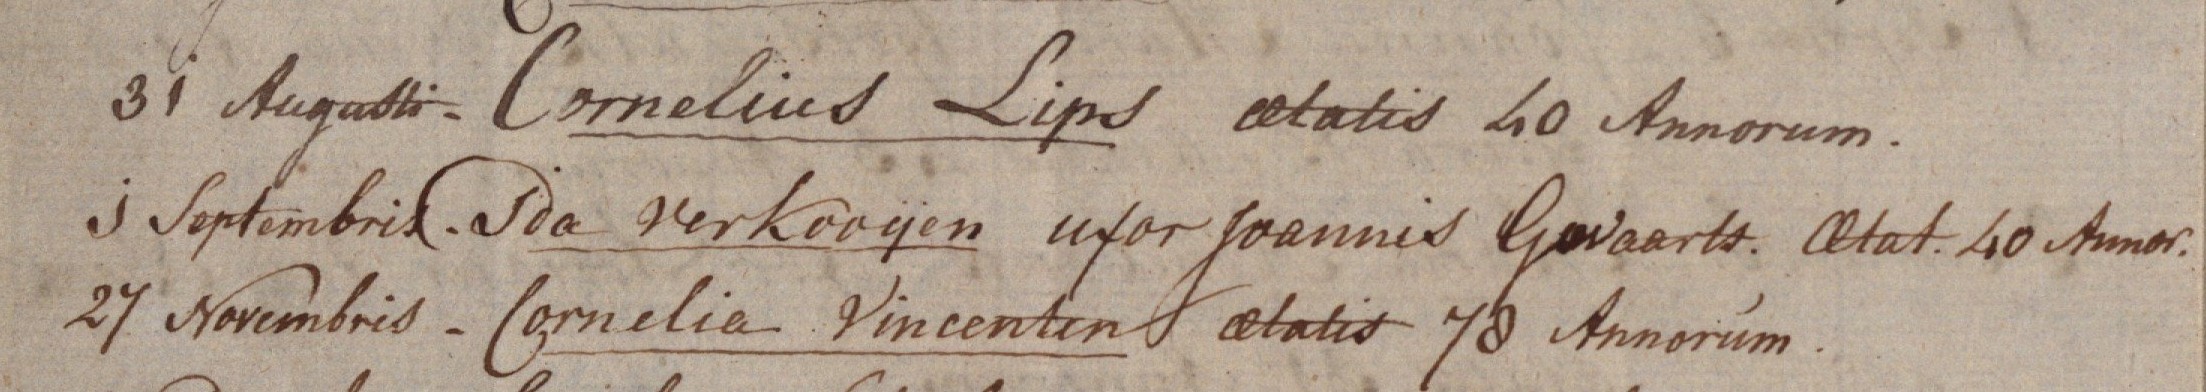 31 Augusti - Cornelius Lips ætatis 40 Annorum.
1 Septembris. Ida Verkooijen uxor Joannis Govaarts. Ætat. 40 Annor.
27 Novembris - Cornelia Vincenten ætatis 78 Annorum.